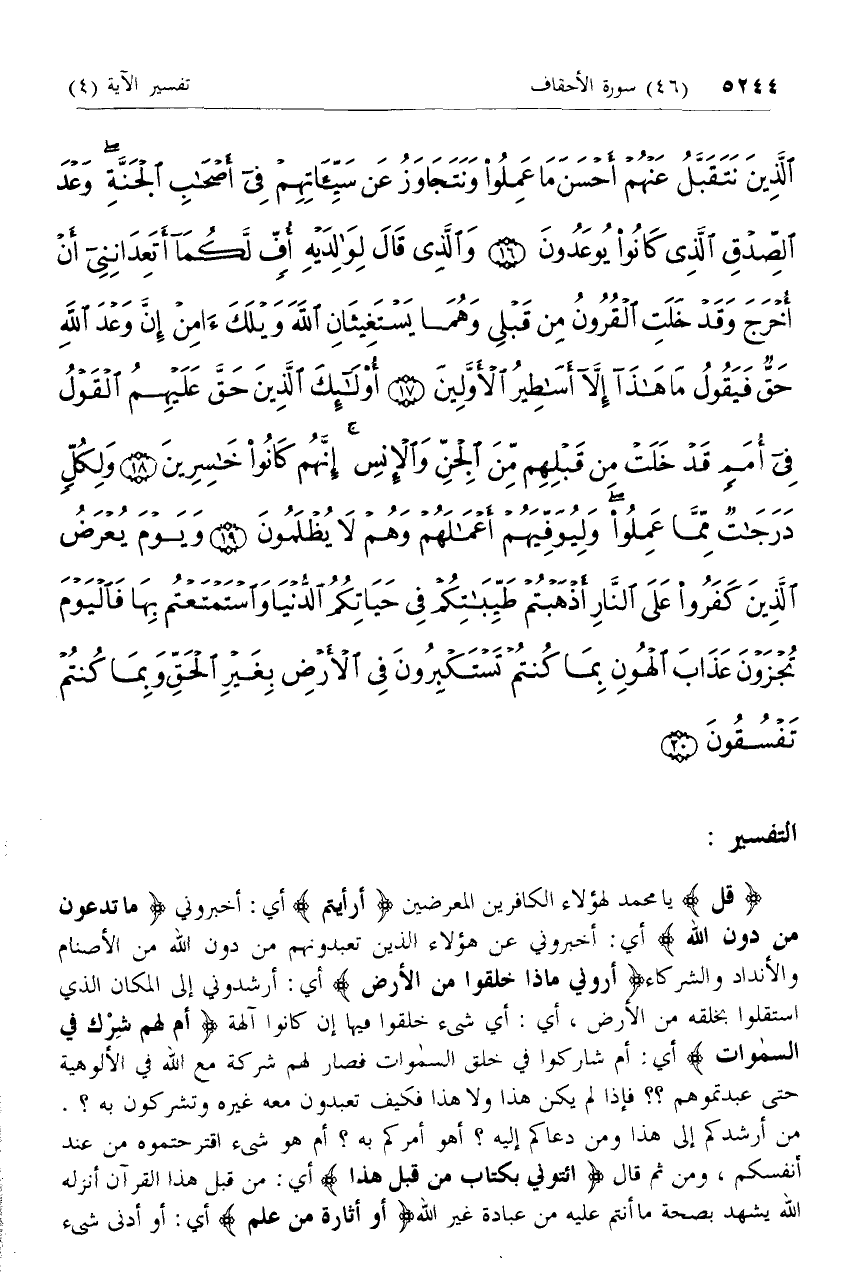 ٥٢٤٤ (٤٦) سورة الأحقاف تفسير الآية (٤)
ٱلَّذِينَ نَتَقَبَّلُ عَنْهُمْ أَحْسَنَ مَا عَمِلُوا۟ وَنَتَجَاوَزُ عَن سَيِّـَٔاتِهِمْ فِىٓ أَصْحَـٰبِ ٱلْجَنَّةِ ۖ وَعْدَ
ٱلصِّدْقِ ٱلَّذِى كَانُوا۟ يُوعَدُونَ ۝١٦ وَٱلَّذِى قَالَ لِوَٰلِدَيْهِ أُفٍّ لَّكُمَآ أَتَعِدَانِنِىٓ أَنْ
أُخْرَجَ وَقَدْ خَلَتِ ٱلْقُرُونُ مِن قَبْلِى وَهُمَا يَسْتَغِيثَانِ ٱللَّهَ وَيْلَكَ ءَامِنْ إِنَّ وَعْدَ ٱللَّهِ
حَقٌّ فَيَقُولُ مَا هَـٰذَآ إِلَّآ أَسَـٰطِيرُ ٱلْأَوَّلِينَ ۝١٧ أُو۟لَـٰٓئِكَ ٱلَّذِينَ حَقَّ عَلَيْهِمُ ٱلْقَوْلُ
فِىٓ أُمَمٍ قَدْ خَلَتْ مِن قَبْلِهِم مِّنَ ٱلْجِنِّ وَٱلْإِنسِ ۚ إِنَّهُمْ كَانُوا۟ خَـٰسِرِينَ ۝١٨ وَلِكُلٍّ
دَرَجَـٰتٌ مِّمَّا عَمِلُوا۟ ۖ وَلِيُوَفِّيَهُمْ أَعْمَـٰلَهُمْ وَهُمْ لَا يُظْلَمُونَ ۝١٩ وَيَوْمَ يُعْرَضُ
ٱلَّذِينَ كَفَرُوا۟ عَلَى ٱلنَّارِ أَذْهَبْتُمْ طَيِّبَـٰتِكُمْ فِى حَيَاتِكُمُ ٱلدُّنْيَا وَٱسْتَمْتَعْتُم بِهَا فَٱلْيَوْمَ
تُجْزَوْنَ عَذَابَ ٱلْهُونِ بِمَا كُنتُمْ تَسْتَكْبِرُونَ فِى ٱلْأَرْضِ بِغَيْرِ ٱلْحَقِّ وَبِمَا كُنتُمْ
تَفْسُقُونَ ۝٢٠
التفسير :
﴿ قل ﴾ يا محمد لهؤلاء الكافرين المعرضين ﴿ أرأيتم ﴾ أي : أخبروني ﴿ ما تدعون
من دون الله ﴾ أي : أخبروني عن هؤلاء الذين تعبدونهم من دون الله من الأصنام
والأنداد والشركاء ﴿ أروني ماذا خلقوا من الأرض ﴾ أي : أرشدوني إلى المكان الذي
استقلوا بخلقه من الأرض ، أي : أي شيء خلقوا فيها إن كانوا آلهة ﴿ أم لهم شِرْك في
السمٰوات ﴾ أي : أم شاركوا في خلق السمٰوات فصار لهم شركة مع الله في الألوهية
حتى عبدتموهم ؟؟ فإذا لم يكن هذا ولا هذا فكيف تعبدون معه غيره وتشركون به ؟ .
من أرشدكم إلى هذا ومن دعاكم إليه ؟ أهو أمركم به ؟ أم هو شيء اقترحتموه من عند
أنفسكم ، ومن ثم قال ﴿ ائتوني بكتاب من قبل هذا ﴾ أي : من قبل هذا القرآن أنزله
الله يشهد بصحة ما أنتم عليه من عبادة غير الله ﴿ أو أثارة من علم ﴾ أي : أو أدنى شيء